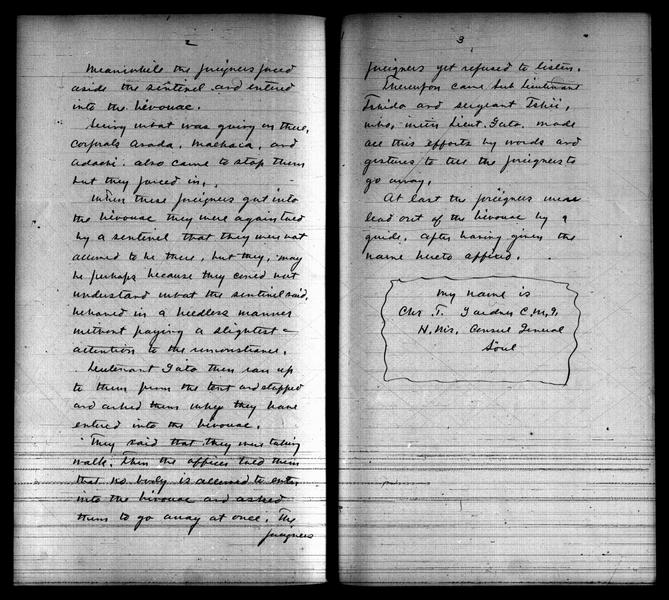 2
Meanwhile the foreigners forced
aside the sentinel and entered
into the bivouac.
Seeing what was going on there,
corporals Asada, Maehara, and
Adachi also came to stop them
but they forced in.
When these foreigners got into
the bivouac they were again told
by a sentinel that they were not
allowed to be there, but they, may
be perhaps because they could not
understand what the sentinel said,
behaved in a heedless manner
without paying a slightest
attention to the remonstrance.
Lieutenant Gato then ran up
to them from the tent and stopped
and asked them why they have
entered into the bivouac.
They said that they was taking
walk. Then the officer told them
that no body is allowed to enter
into the bivouac and asked
them to go away at once. The
foreigners
3
foreigners yet refused to listen.
Thereupon came sub lieutenant
Ishida and sergeant Ishii,
who, with Lieut. Gato, made
all this efforts by words and
gestures to tell the foreigners to
go away.
At last the foreigners were
lead out of the bivouac by a
guide, after having given the
name hereto affixed.
My name is
Chr T. Gardner C.M.G.
H. Ms. Consul General
Söul